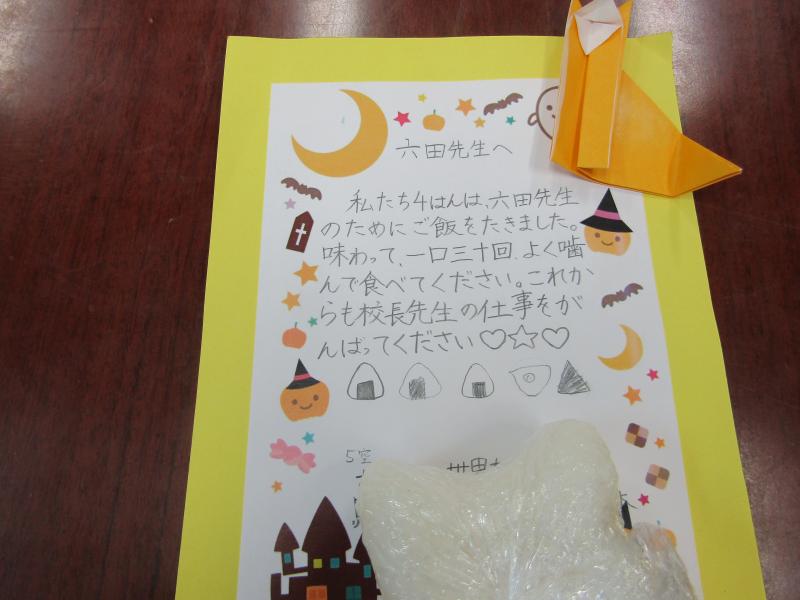 六田先生へ
私たち4はんは、六田先生
のためにご飯をたきました。
味わって、一口三十回、よく噛
んで食べてください。これか
らも校長先生の仕事をが
んばってください♡☆♡
5空